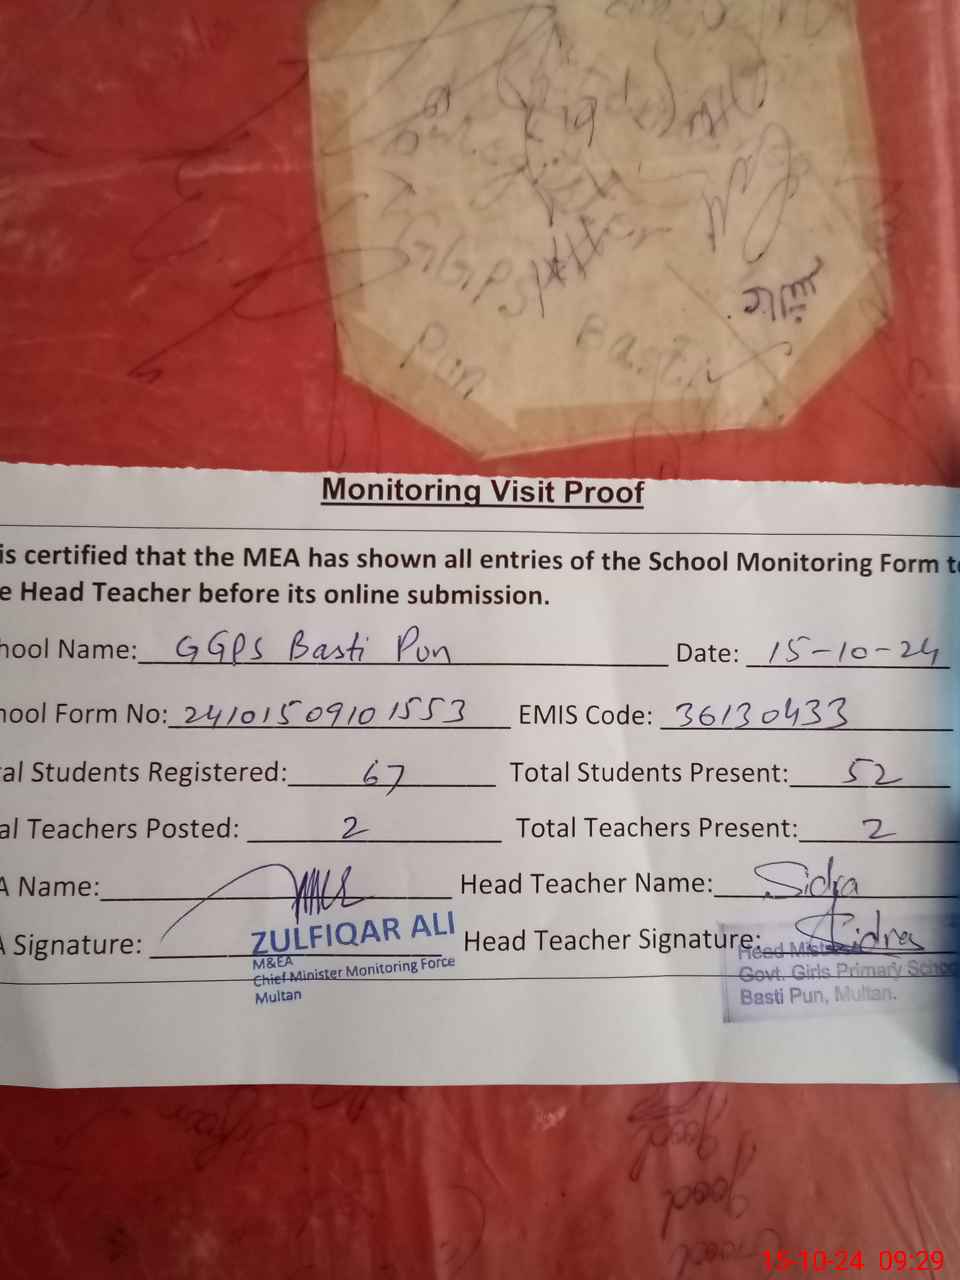 GGPS
Basti
Pun
Monitoring Visit Proof
is certified that the MEA has shown all entries of the School Monitoring Form t
e Head Teacher before its online submission.
hool Name: GGPS Basti Pun Date: 15-10-24
hool Form No: 24101509101553 EMIS Code: 36130433
al Students Registered: 67 Total Students Present: 52
al Teachers Posted: 2 Total Teachers Present: 2
A Name: Head Teacher Name: Sidra
A Signature: Head Teacher Signature: Sidra
ZULFIQAR ALI
M&EA
Chief Minister Monitoring Force
Multan
Head Mistress
Govt. Girls Primary School
Basti Pun, Multan.
good
good
Good
15-10-24 09:29